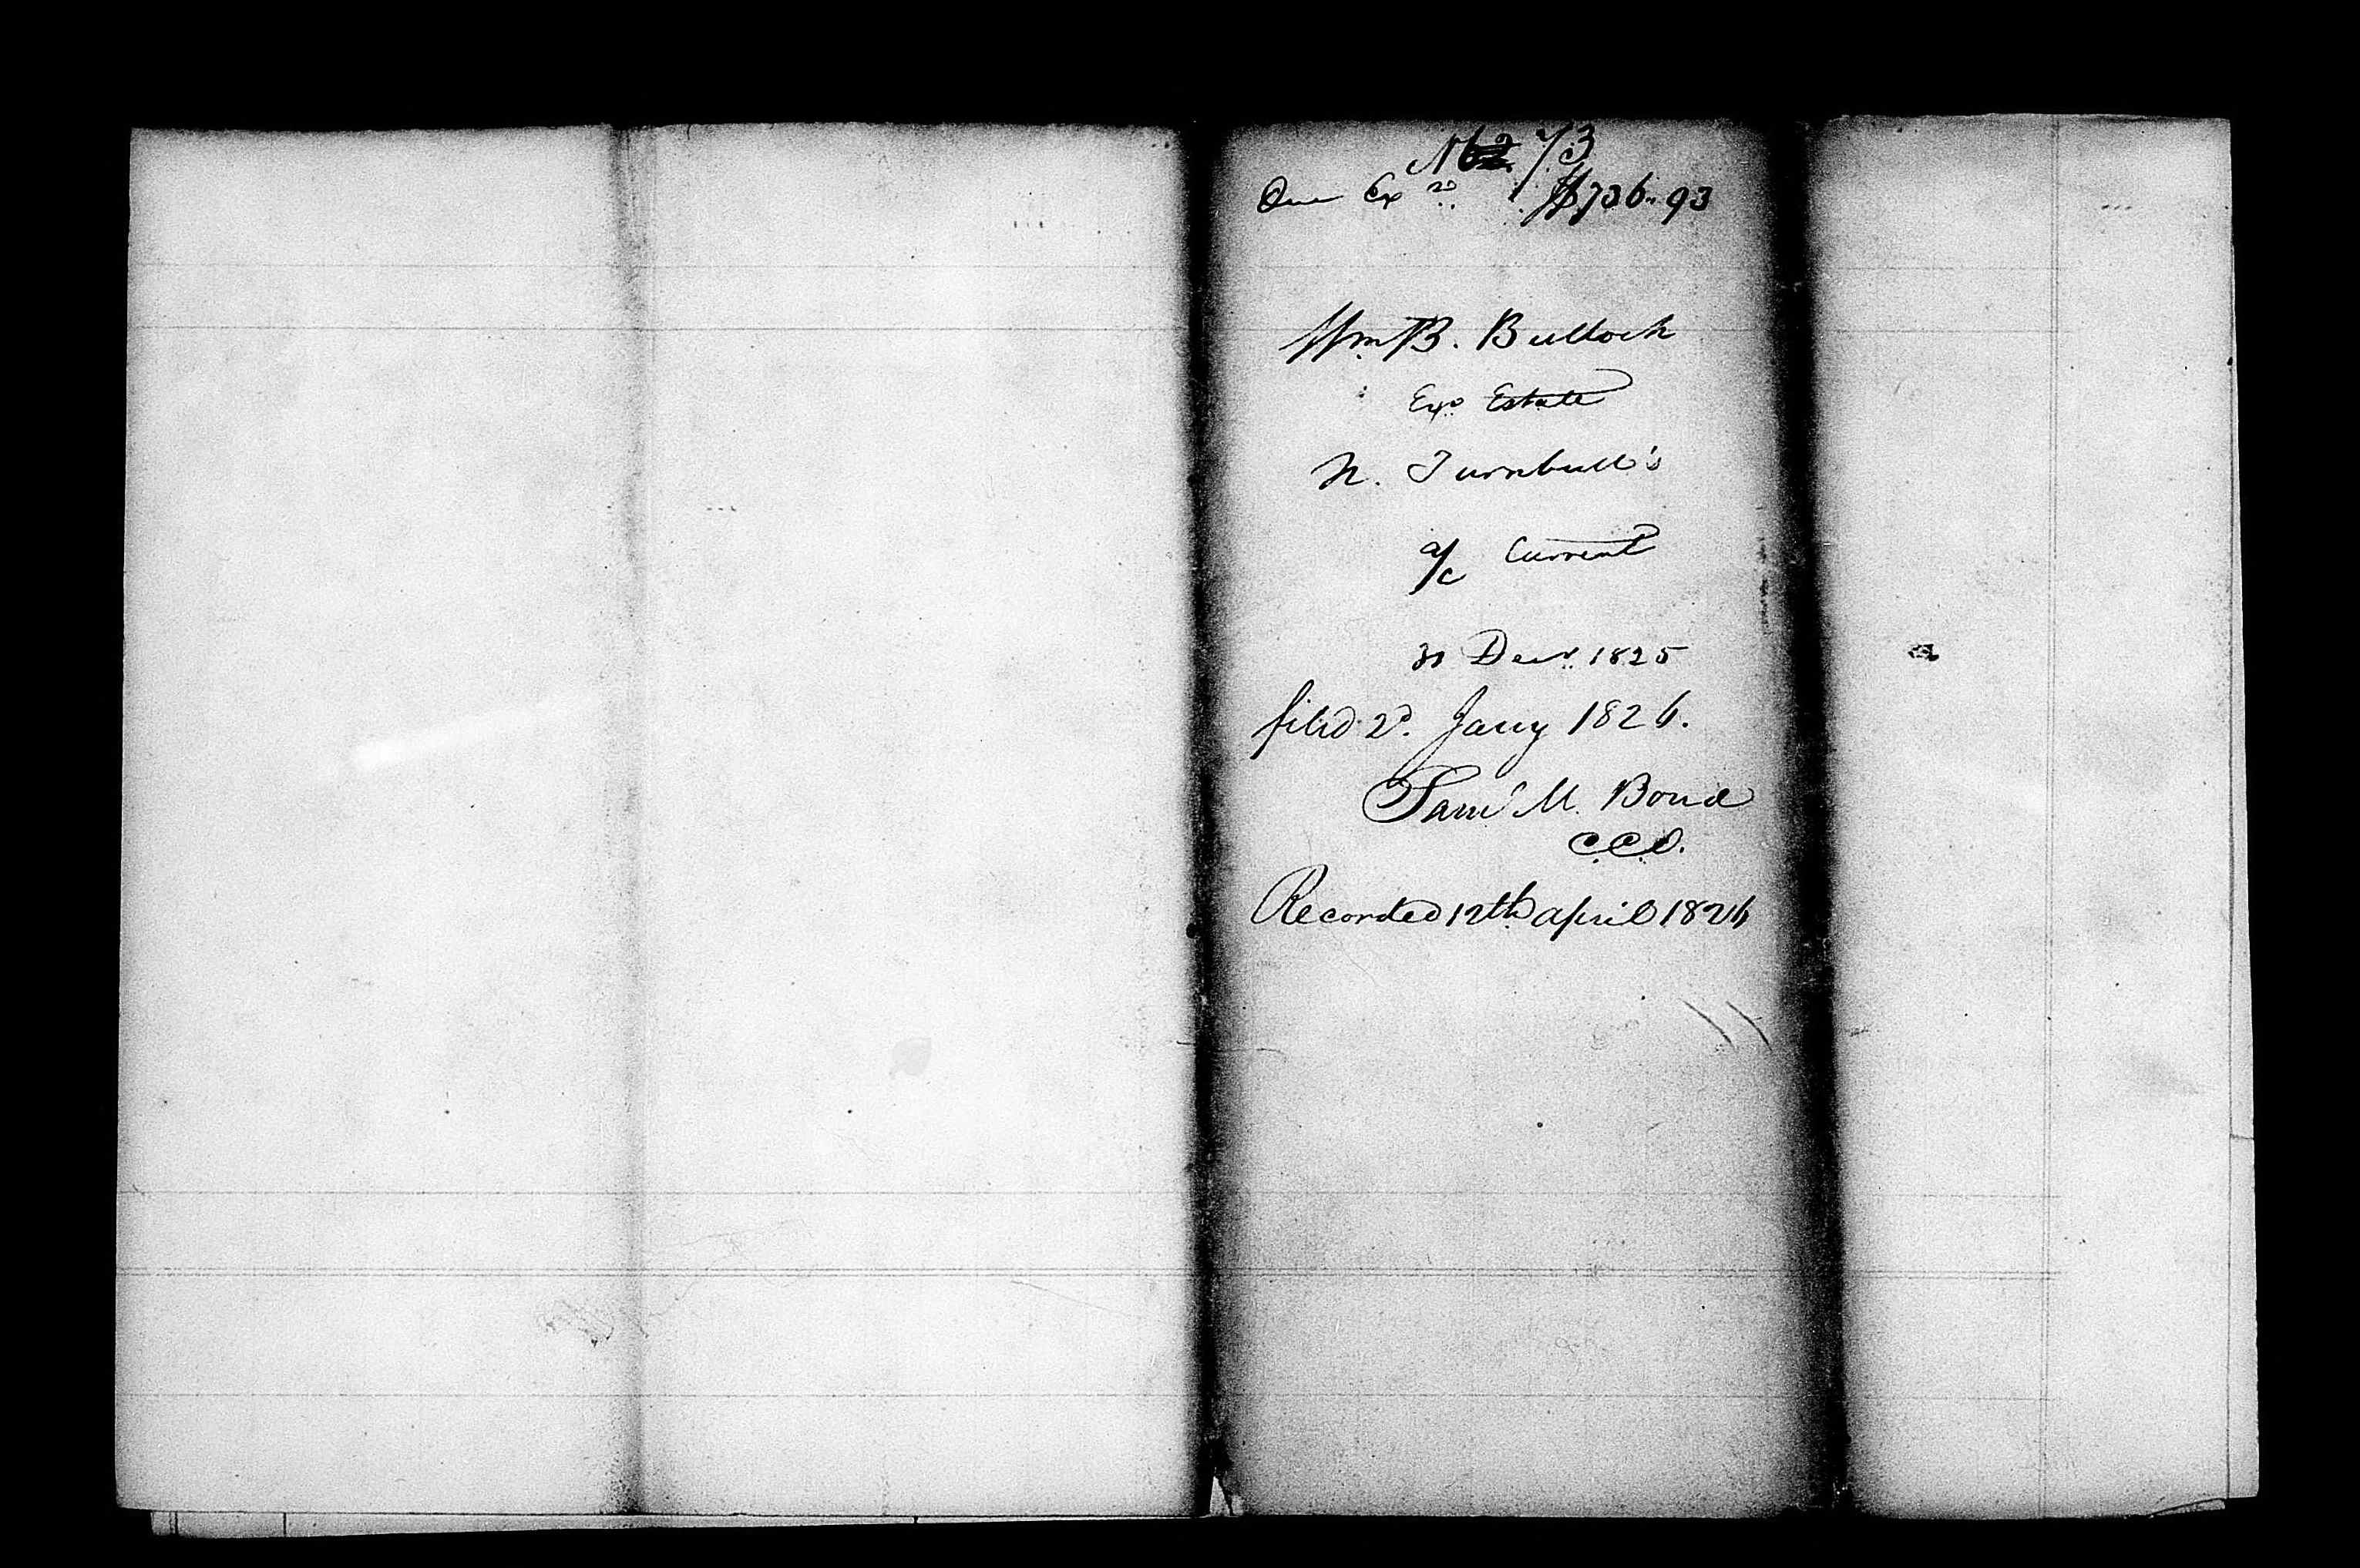 No 73
Due Exrs $736.. 93
Wm B. Bulloch
Exr Estate
N. Turnbull's
a/c Current
31 Decr. 1825
filed 2d. Jany 1826.
Saml M. Bond
C.C.O.
Recorded 12th april 1826